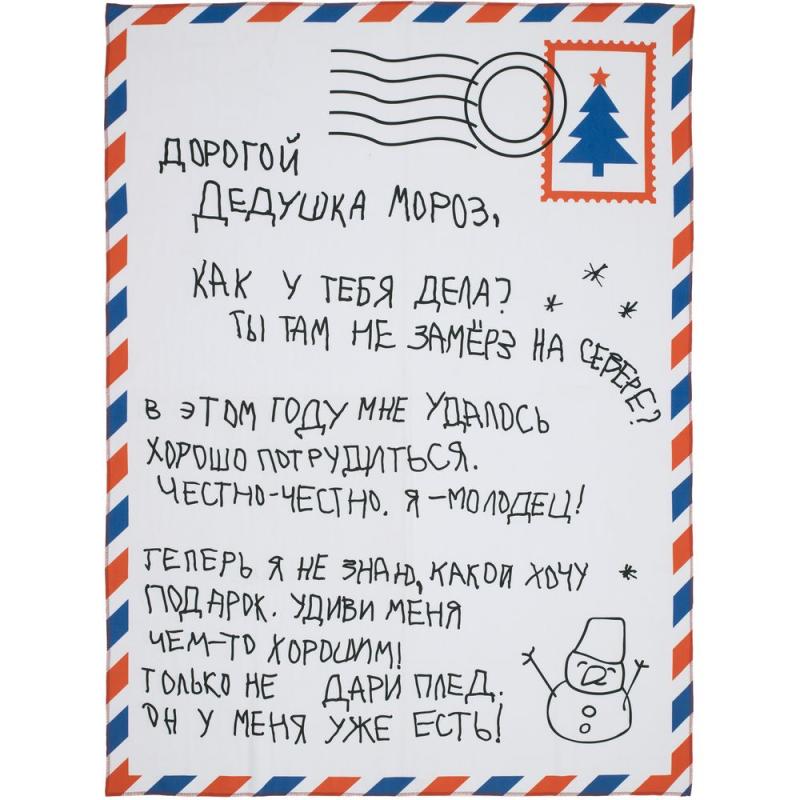 ДОРОГОЙ
ДЕДУШКА МОРОЗ,
КАК У ТЕБЯ ДЕЛА?
ТЫ ТАМ НЕ ЗАМЁРЗ НА СЕВЕРЕ?
В ЭТОМ ГОДУ МНЕ УДАЛОСЬ
ХОРОШО ПОТРУДИТЬСЯ.
ЧЕСТНО-ЧЕСТНО. Я - МОЛОДЕЦ!
ТЕПЕРЬ Я НЕ ЗНАЮ, КАКОЙ ХОЧУ
ПОДАРОК. УДИВИ МЕНЯ
ЧЕМ-ТО ХОРОШИМ!
ТОЛЬКО НЕ ДАРИ ПЛЕД.
ОН У МЕНЯ УЖЕ ЕСТЬ!